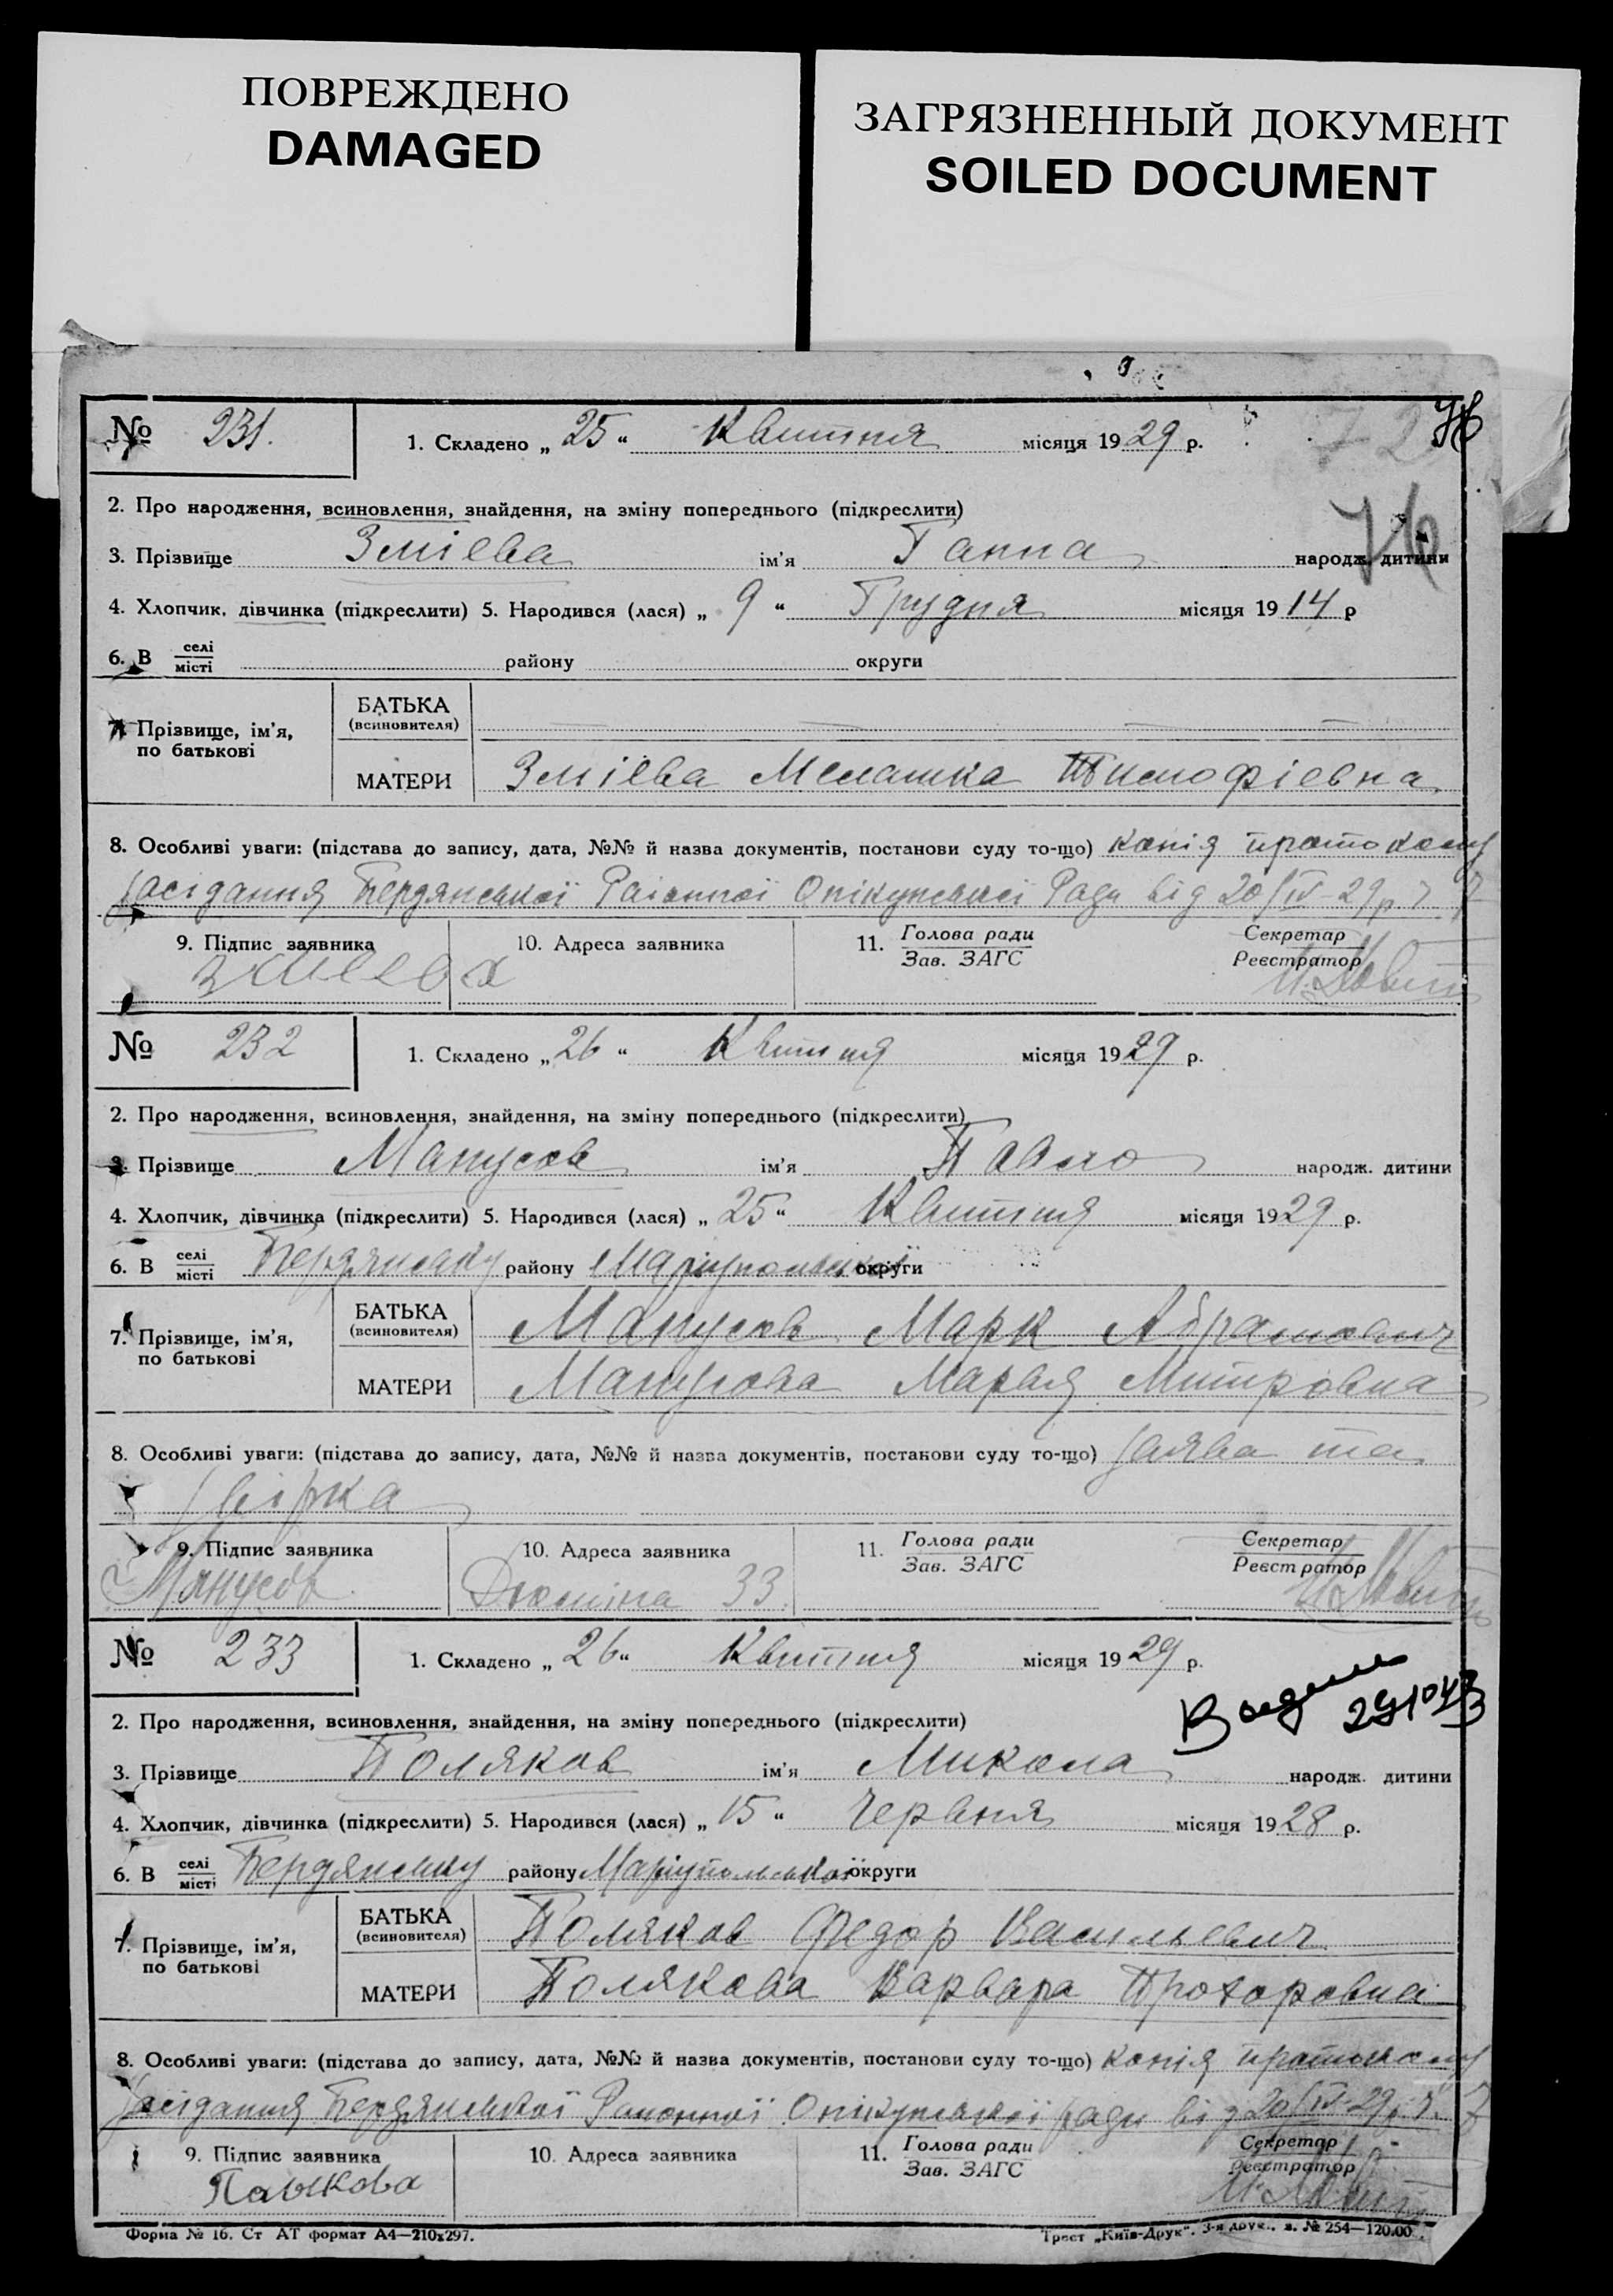 ПОВРЕЖДЕНО
DAMAGED
ЗАГРЯЗНЕННЫЙ ДОКУМЕНТ
SOILED DOCUMENT
№ 231. 1. Складено „ 25 “ Квитня місяця 1929 р.
2. Про народження, всиновлення, знайдення, на зміну попереднього (підкреслити)
76
3. Прізвище Змієва ім'я Ганна народж. дитини
4. Хлопчик, дівчинка (підкреслити) 5. Народився (лася) „ 9 “ Грудня місяця 1914 р
6. В селі місті району округи
7. Прізвище, ім'я, по батькові
БАТЬКА (всиновителя)
МАТЕРИ Змієва Мелашка Тимофієвна
8. Особливі уваги: (підстава до запису, дата, №№ й назва документів, постанови суду то-що) копія протоколу
засідання Бердянської Раіонної Опікунської Ради від 20/IV-29 р. ч. 7
9. Підпис заявника 10. Адреса заявника 11. Голова ради Зав. ЗАГС Секретар Реєстратор
Змиева
№ 232 1. Складено „ 26 “ Квитня місяця 1929 р.
2. Про народження, всиновлення, знайдення, на зміну попереднього (підкреслити)
3. Прізвище Манусов ім'я Павло народж. дитини
4. Хлопчик, дівчинка (підкреслити) 5. Народився (лася) „ 25 “ Квитня місяця 1929 р.
6. В селі місті Бердянську району Маріупольської округи
7. Прізвище, ім'я, по батькові
БАТЬКА (всиновителя) Манусов Марк Абрамович
МАТЕРИ Манусова Марья Митровна
8. Особливі уваги: (підстава до запису, дата, №№ й назва документів, постанови суду то-що) заява та
звірка
9. Підпис заявника 10. Адреса заявника 11. Голова ради Зав. ЗАГС Секретар Реєстратор
Манусов Дюміна 33
№ 233 1. Складено „ 26 “ Квитня місяця 1929 р.
2. Про народження, всиновлення, знайдення, на зміну попереднього (підкреслити)
3. Прізвище Поляков ім'я Микола народж. дитини
4. Хлопчик, дівчинка (підкреслити) 5. Народився (лася) „ 15 “ Червня місяця 1928 р.
6. В селі місті Бердянську району Маріупольської округи
7. Прізвище, ім'я, по батькові
БАТЬКА (всиновителя) Поляков Федор Васильевич
МАТЕРИ Полякова Варвара Прохоровна
8. Особливі уваги: (підстава до запису, дата, №№ й назва документів, постанови суду то-що) копія протоколу
засідання Бердянської Раионної Опікунської ради від 20/IV-29 р. ч. 7
9. Підпис заявника 10. Адреса заявника 11. Голова ради Зав. ЗАГС Секретар Реєстратор
Форма № 16. Ст АТ формат А4—210х297.
Трест „Київ-Друк“. 3-я друк., з. № 254—120.00